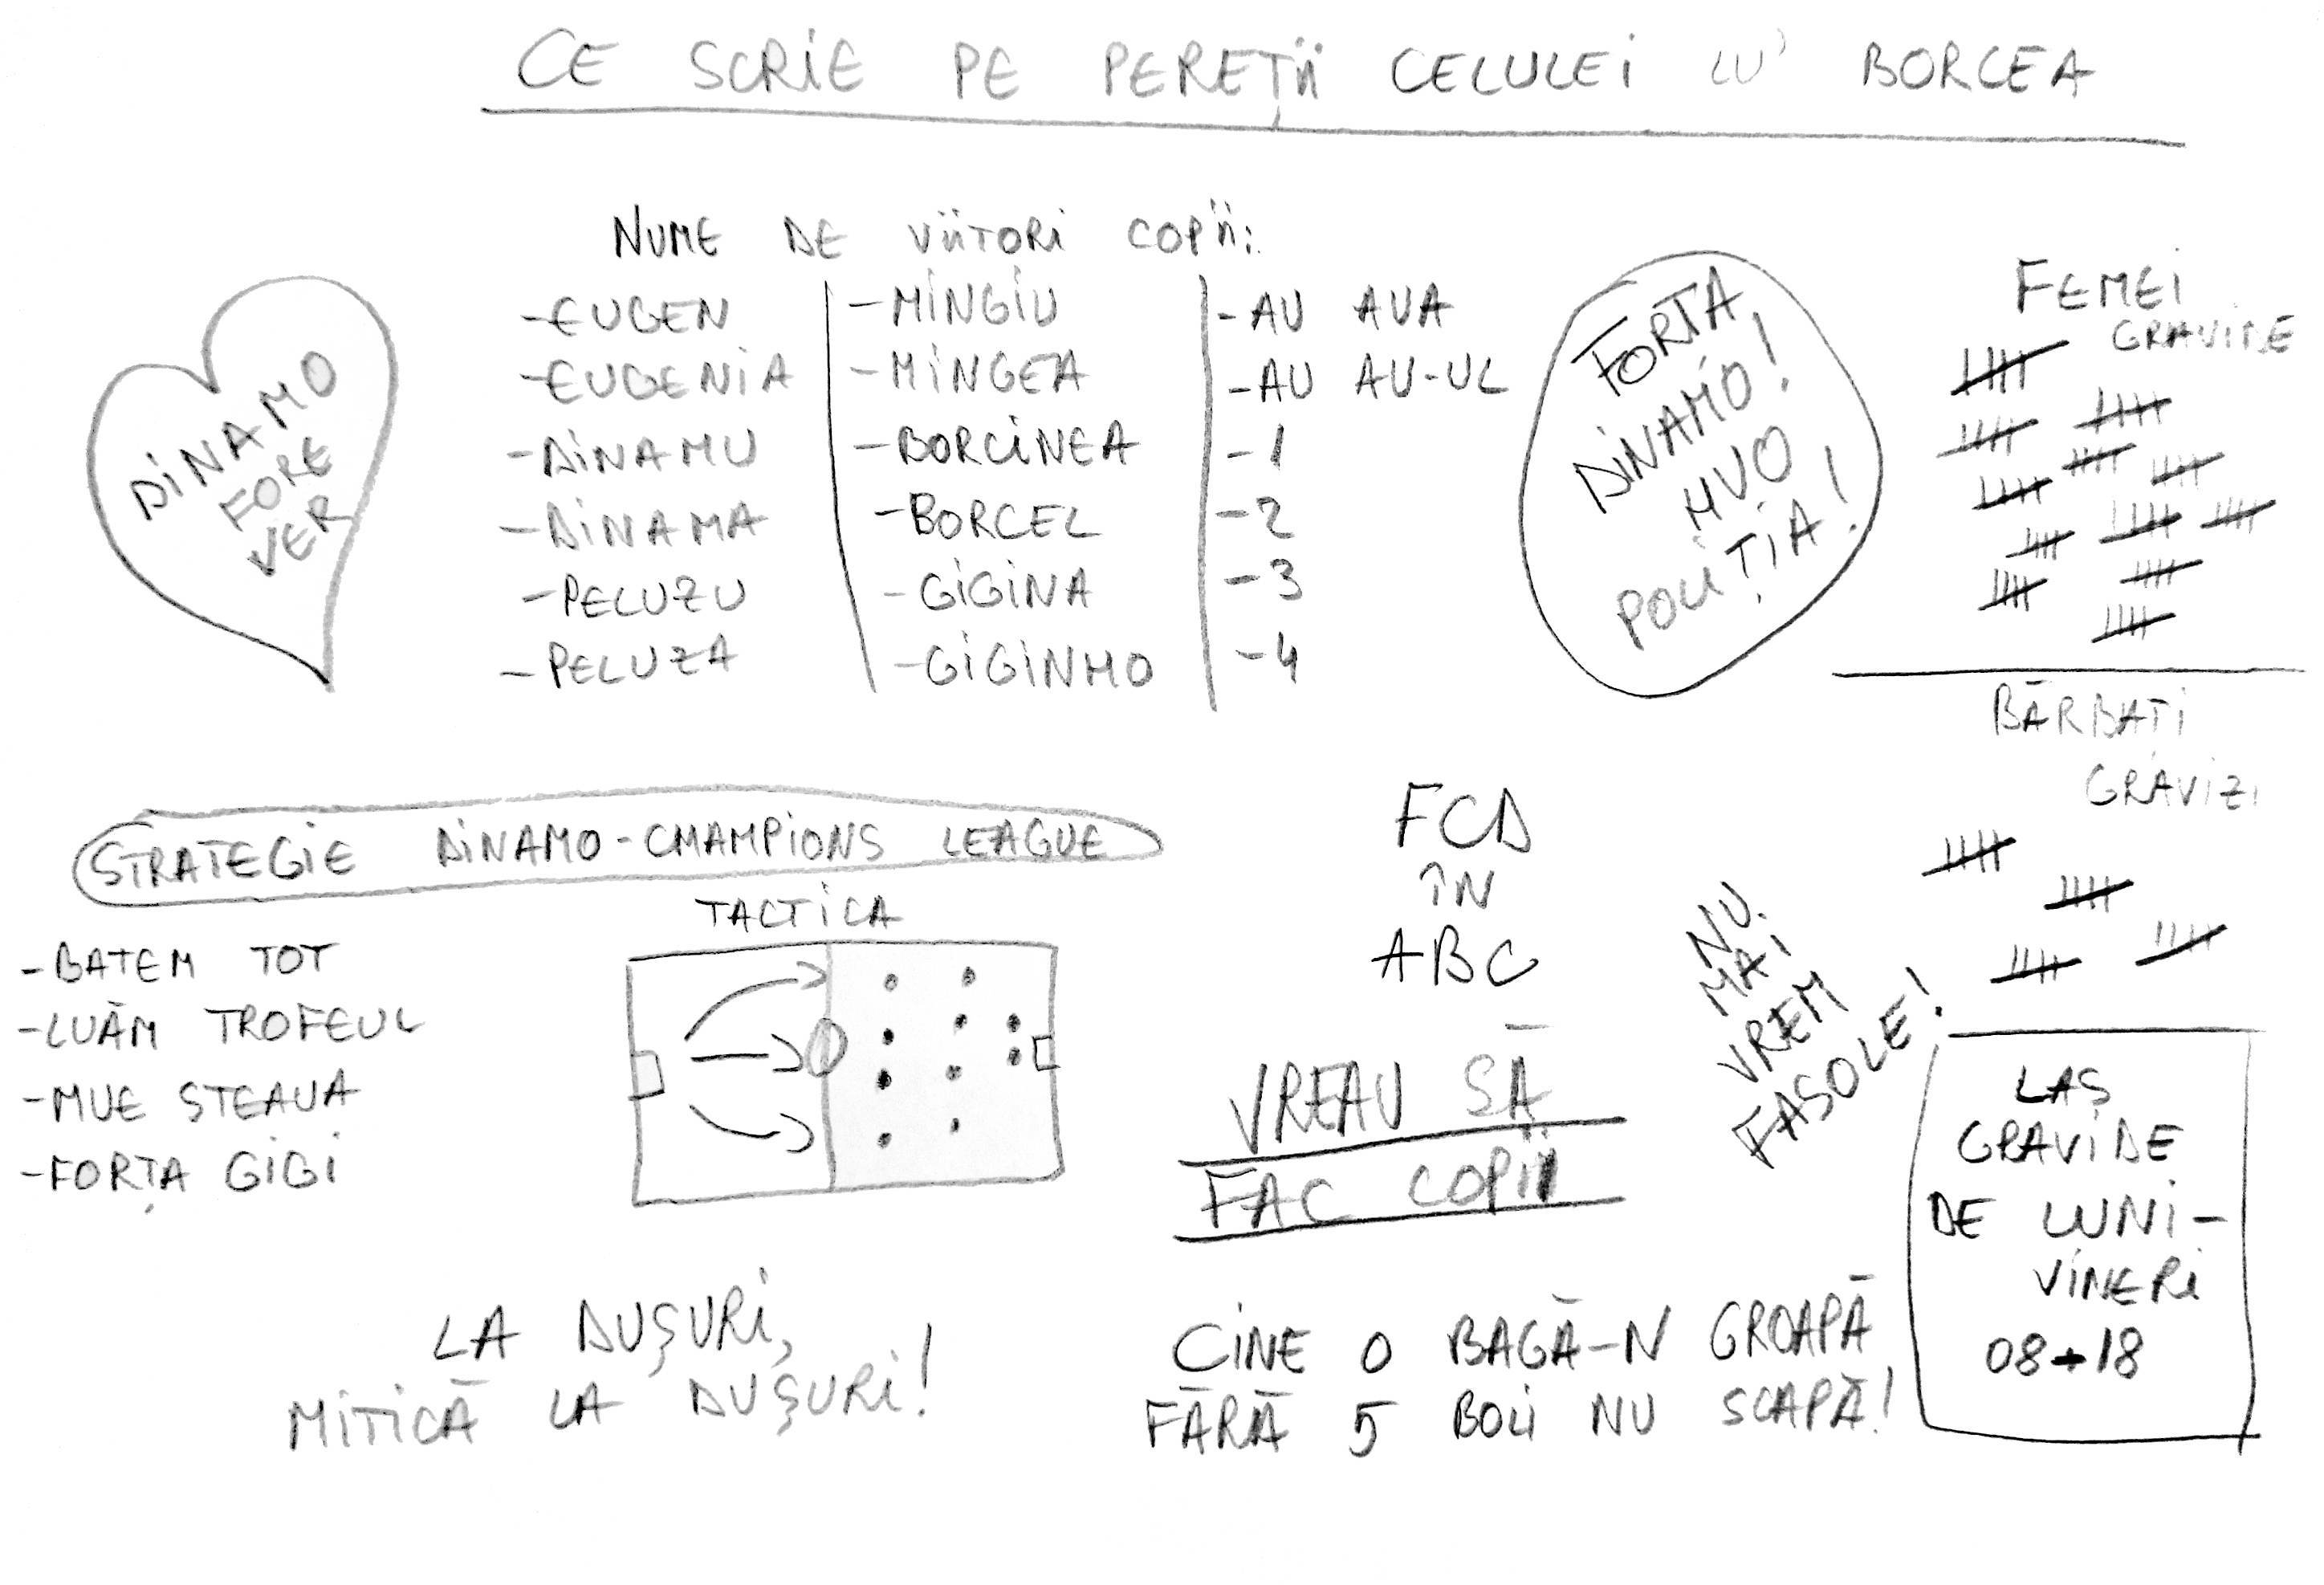 CE SCRIE PE PEREȚII CELULEI LU' BORCEA
DINAMO
FORE
VER
NUME DE VIITORI COPII:
-EUGEN
-EUGENIA
-DINAMU
-DINAMA
-PELUZU
-PELUZA
-MINGIU
-MINGEA
-BORCINEA
-BORCEL
-GIGINA
-GIGINHO
-AU AUA
-AU AU-UL
-1
-2
-3
-4
FORTA
DINAMO!
HUO
POLIȚIA!
FEMEI
GRAVIDE
BĂRBATI
GRAVIZI
STRATEGIE DINAMO-CHAMPIONS LEAGUE
-BATEM TOT
-LUĂM TROFEUL
-MUE STEAUA
-FORȚA GIGI
TACTICA
FCD
ÎN
ABC
VREAU SĂ
FAC COPII
NU
MAI
VREM
FASOLE!
LAS
GRAVIDE
DE LUNI-
VINERI
08-18
LA DUȘURI,
MITICĂ LA DUȘURI!
CINE O BAGĂ-N GROAPĂ
FĂRĂ 5 BOLI NU SCAPĂ!